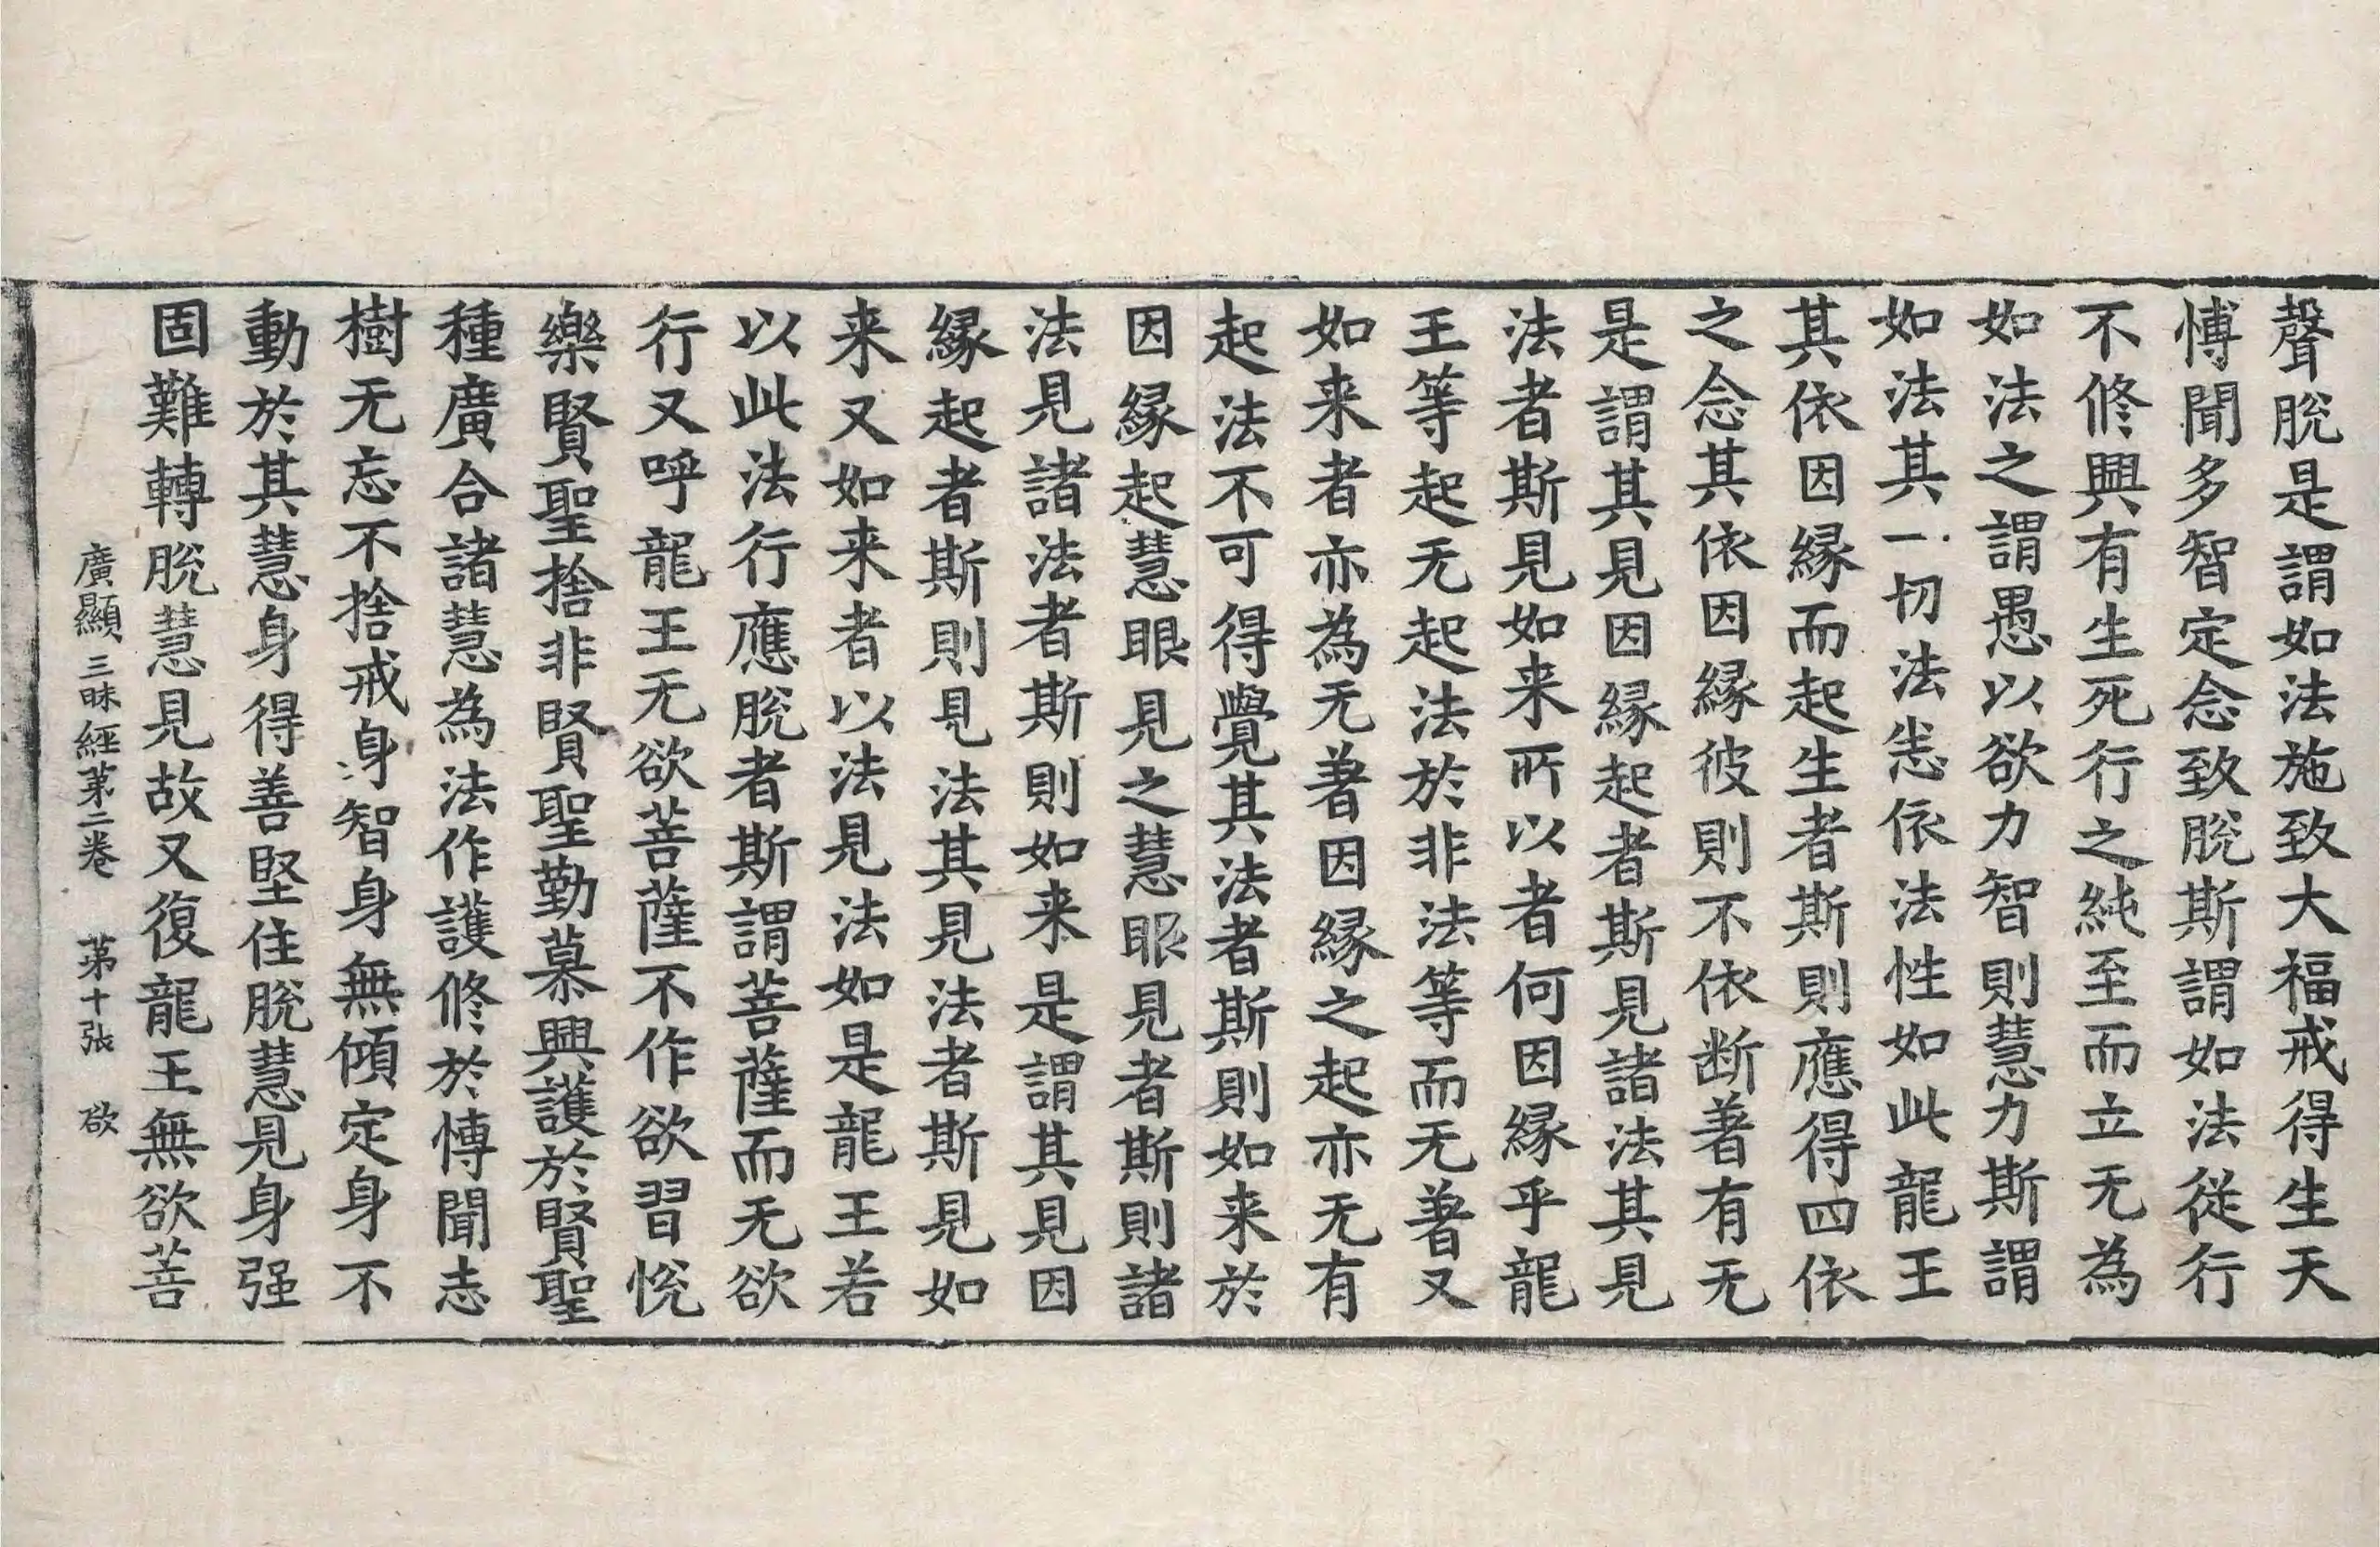 聲脫是謂如法施致大福戒得生天
愽聞多智定念致脫斯謂如法從行
不修興有生死行之純至而立无為
如法之謂愚以欲力智則慧力斯謂
如法其一切法恙依法性如此龍王
其依因緣而起生者斯則應得四依
之念其依因緣彼則不依断著有无
是謂其見因緣起者斯見諸法其見
法者斯見如来所以者何因緣乎龍
王等起无起法於非法等而无著又
如来者亦為无著因緣之起亦无有
起法不可得覺其法者斯則如来於
因緣起慧眼見之慧眼見者斯則諸
法見諸法者斯則如来是謂其見因
緣起者斯則見法其見法者斯見如
来又如来者以法見法如是龍王若
以此法行應脫者斯謂菩薩而无欲
行又呼龍王无欲菩薩不作欲習悅
樂賢聖捨非賢聖勤慕興護於賢聖
種廣合諸慧為法作護修於愽聞志
樹无忘不捨戒身智身無傾定身不
動於其慧身得善堅住脫慧見身强
固難轉脫慧見故又復龍王無欲菩
廣顯三昧經第二卷 第十張 欲